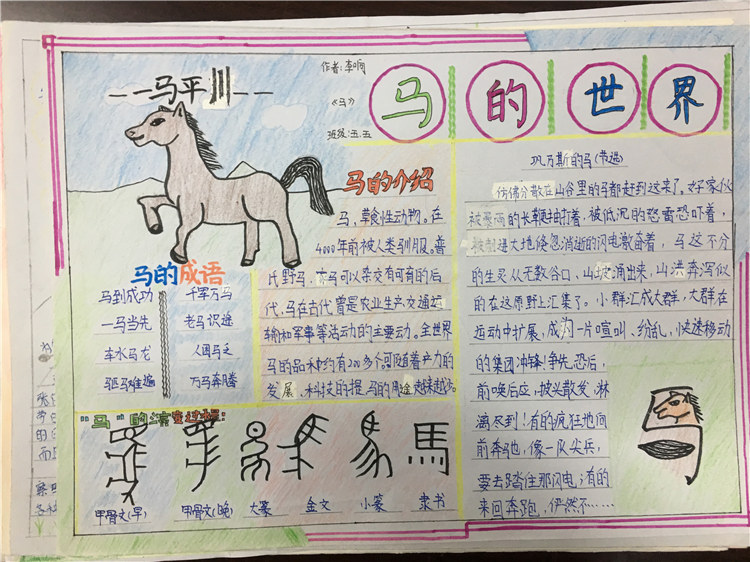 一马平川
作者:李响
《马》
班级:五.五
马的世界
马的介绍
马,草食性动物。在
4000年前被人类驯服。普
氏野马,家马可以杂交有可育的后
代,马在古代曾是农业生产、交通运
输和军事等活动的主要动。全世界
马的品种约有200多个,可随着产力的
发展,科技的提,马的用途越来越少。
马的成语
马到成功 千军万马
一马当先 老马识途
车水马龙 人困马乏
驷马难追 万马奔腾
"马"的演变过程:
甲骨文(早) 甲骨文(晚) 大篆 金文 小篆 隶书
馬
巩乃斯的马(节选)
仿佛分散在山谷里的马都赶到这来了。好家伙
被暴雨的长鞭抽打着,被低沉的怒雷恐吓着,
被刺进大地倏忽消逝的闪电激奋着,马这不分
的生灵从无数谷口,山坡涌出来,山洪奔泻似
的在这原野上汇集了。小群汇成大群,大群在
运动中扩展,成为一片喧叫、纷乱,快速移动
的集团冲锋!争先恐后,
前唤后应,披头散发,淋
漓尽到!有的疯狂地向
前奔驰,像一队尖兵,
要去踏住那闪电;有的
来回奔跑,俨然不……